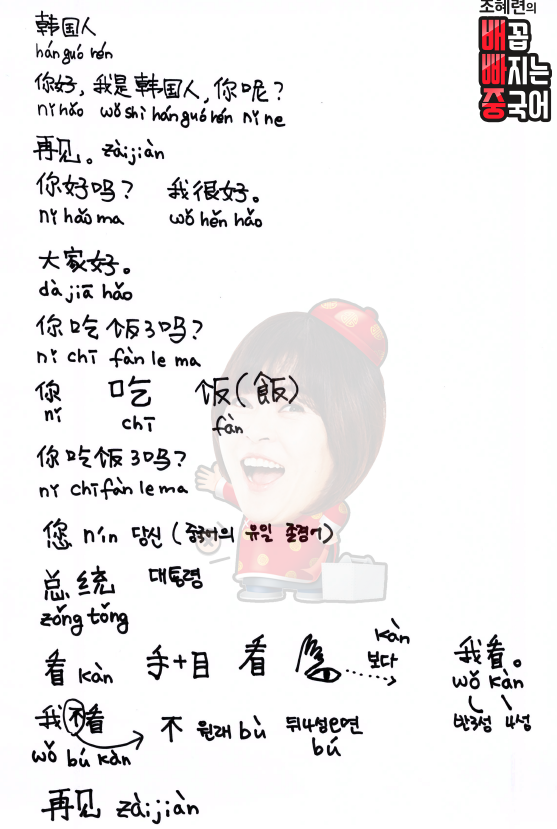 조혜련의
배꼽
빠지는
중국어
韩国人
hán guó rén
你好, 我是韩国人, 你呢?
nǐ hǎo wǒ shì hán guó rén nǐ ne
再见。zàijiàn
你好吗? 我很好。
nǐ hǎo ma wǒ hěn hǎo
大家好。
dà jiā hǎo
你吃饭了吗?
nǐ chī fàn le ma
你 吃 饭(飯)
nǐ chī fàn
你吃饭了吗?
nǐ chī fàn le ma
您 nín 당신 (중국어의 유일 존경어)
总统 대통령
zǒng tǒng
看 kàn 手+目 看 kàn 보다 我看。
wǒ kàn
반3성 4성
我不看 不 원래 bù 뒤4성오면
wǒ bú kàn bú
再见 zàijiàn